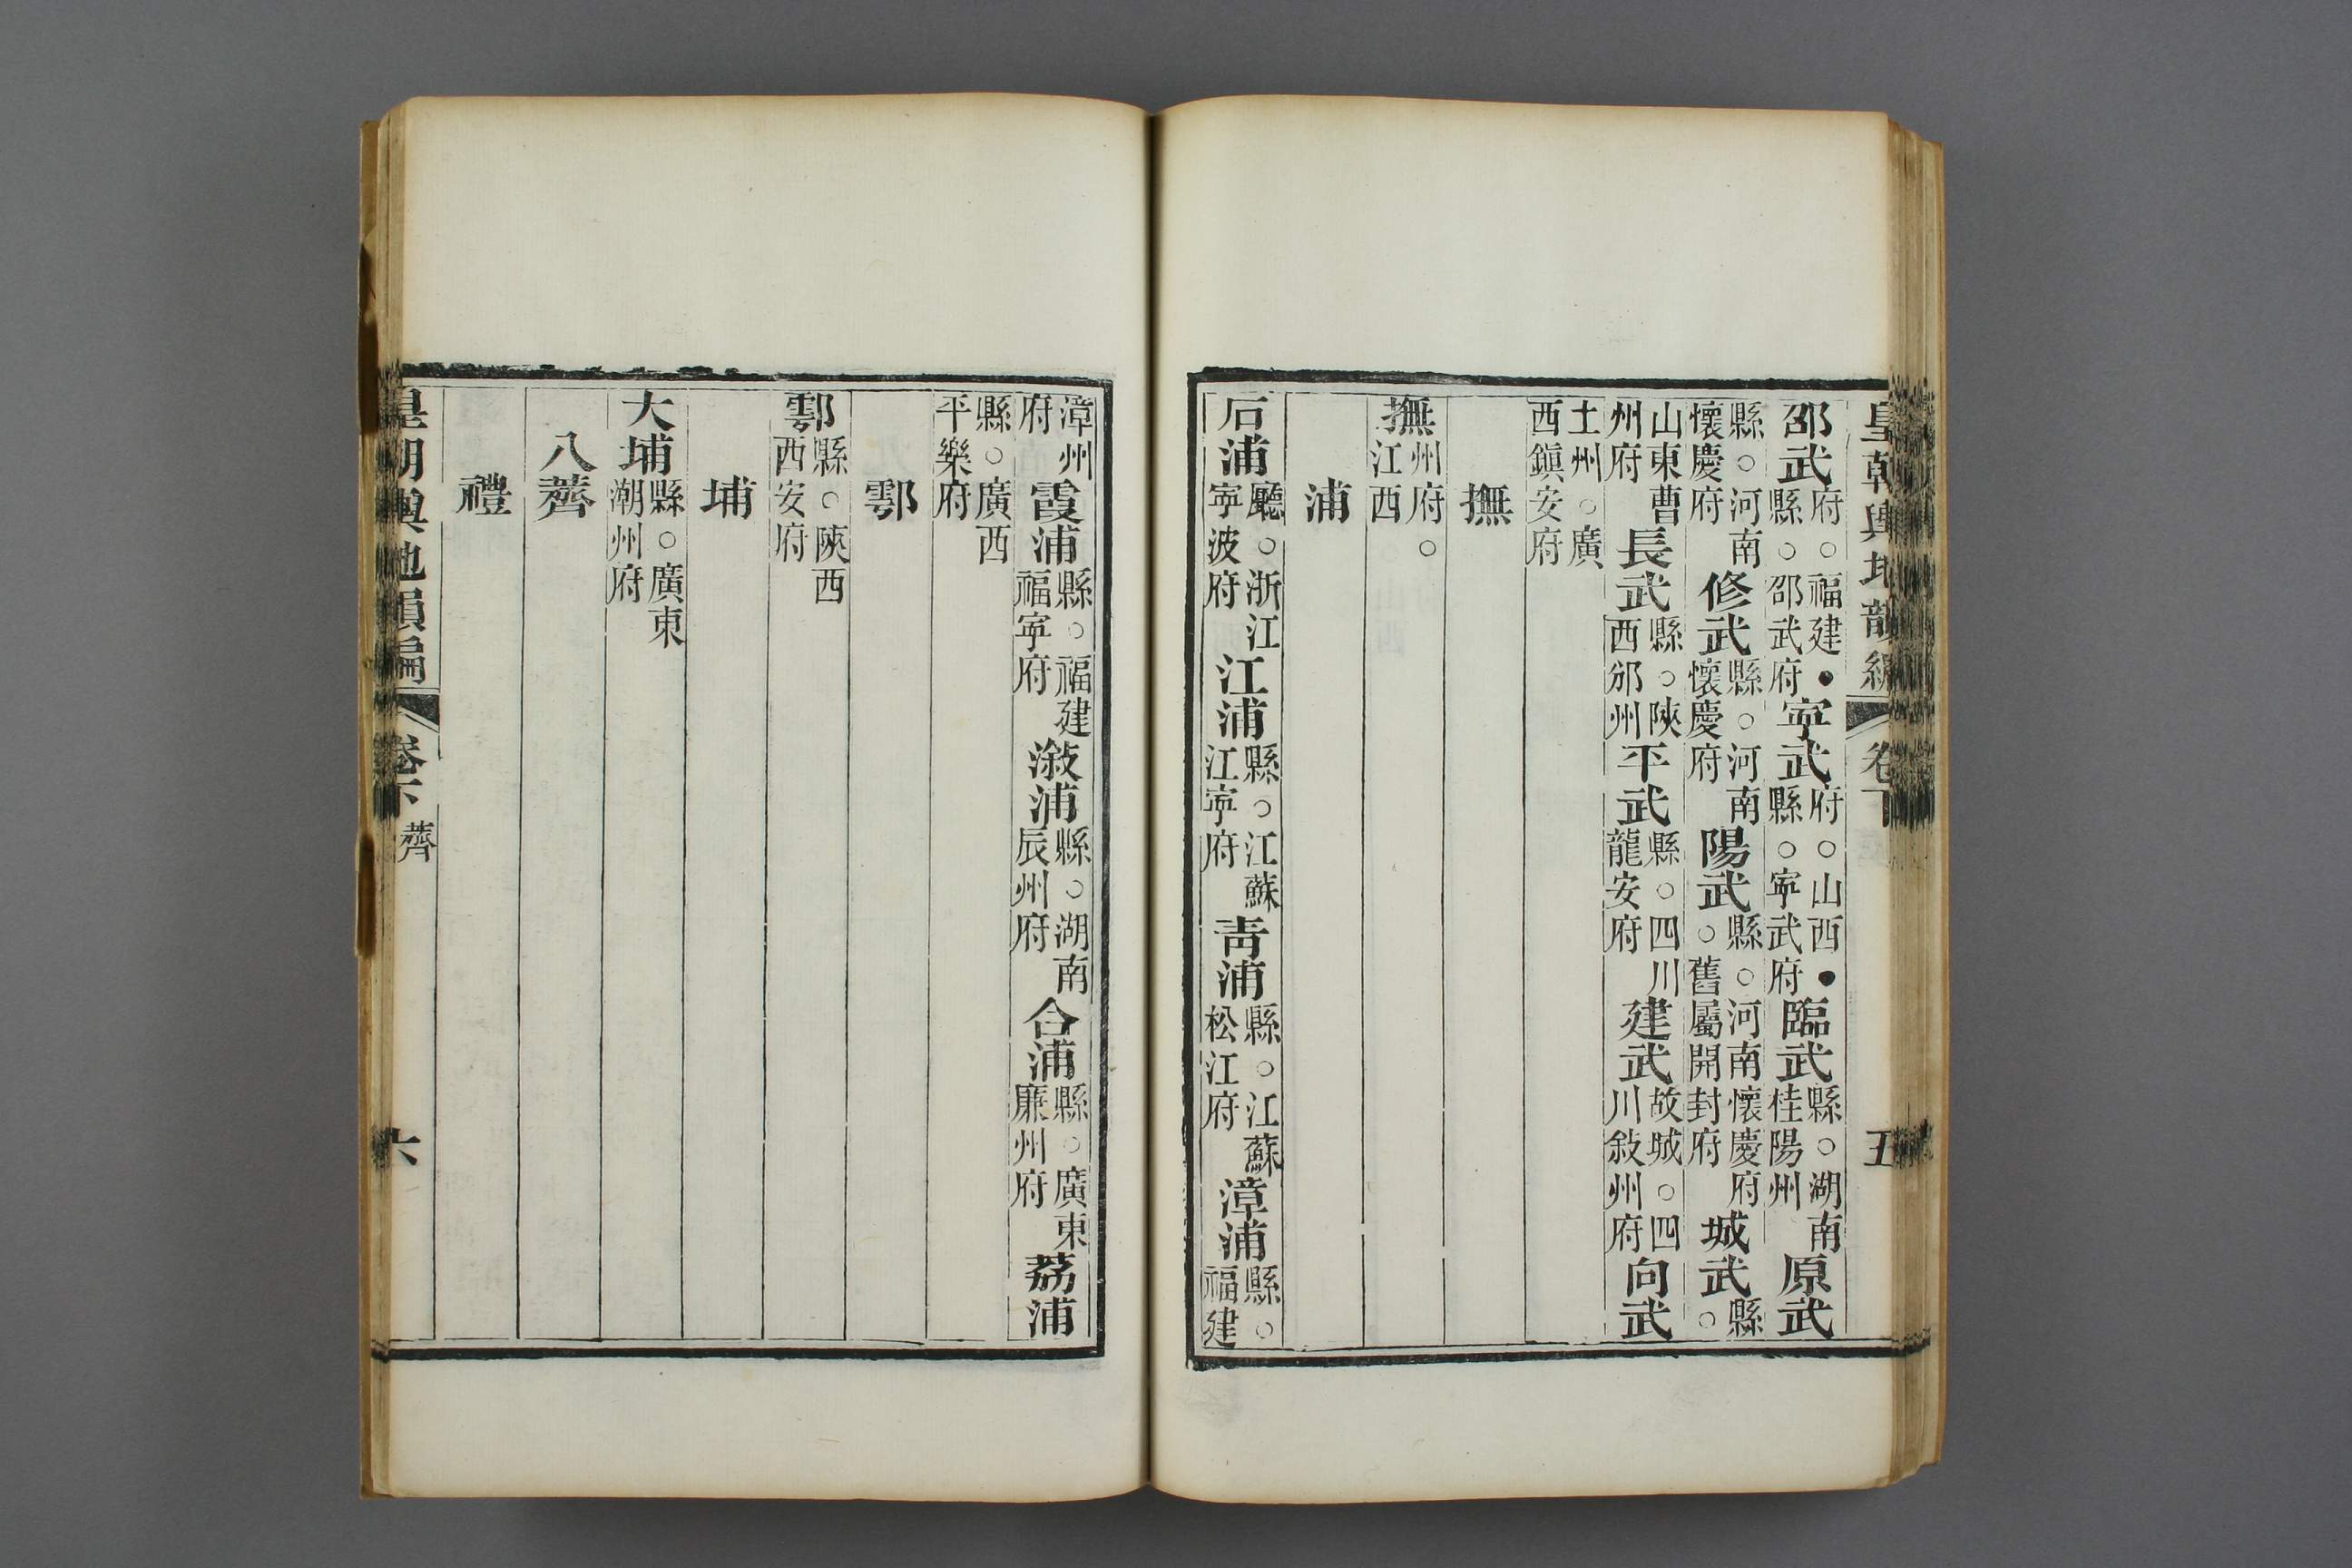 皇朝輿地韻編 卷下 五
邵武府○福建●縣○邵武府寧武府○山西●縣○寧武府臨武縣○湖南桂陽州原武
縣○河南懷慶府修武縣○河南懷慶府陽武縣○河南懷慶府○舊屬開封府城武縣○
山東曹州府長武縣○陝西邠州平武縣○四川龍安府建武故城○四川敍州府向武
土州○廣西鎮安府
撫
撫州府○江西
浦
石浦廳○浙江寧波府江浦縣○江蘇江寧府青浦縣○江蘇松江府漳浦縣○福建
漳州府霞浦縣○福建福寧府漵浦縣○湖南辰州府合浦縣○廣東廉州府荔浦
縣○廣西平樂府
鄠
鄠縣○陝西西安府
埔
大埔縣○廣東潮州府
八薺
禮
皇朝輿地韻編 卷下 薺 六